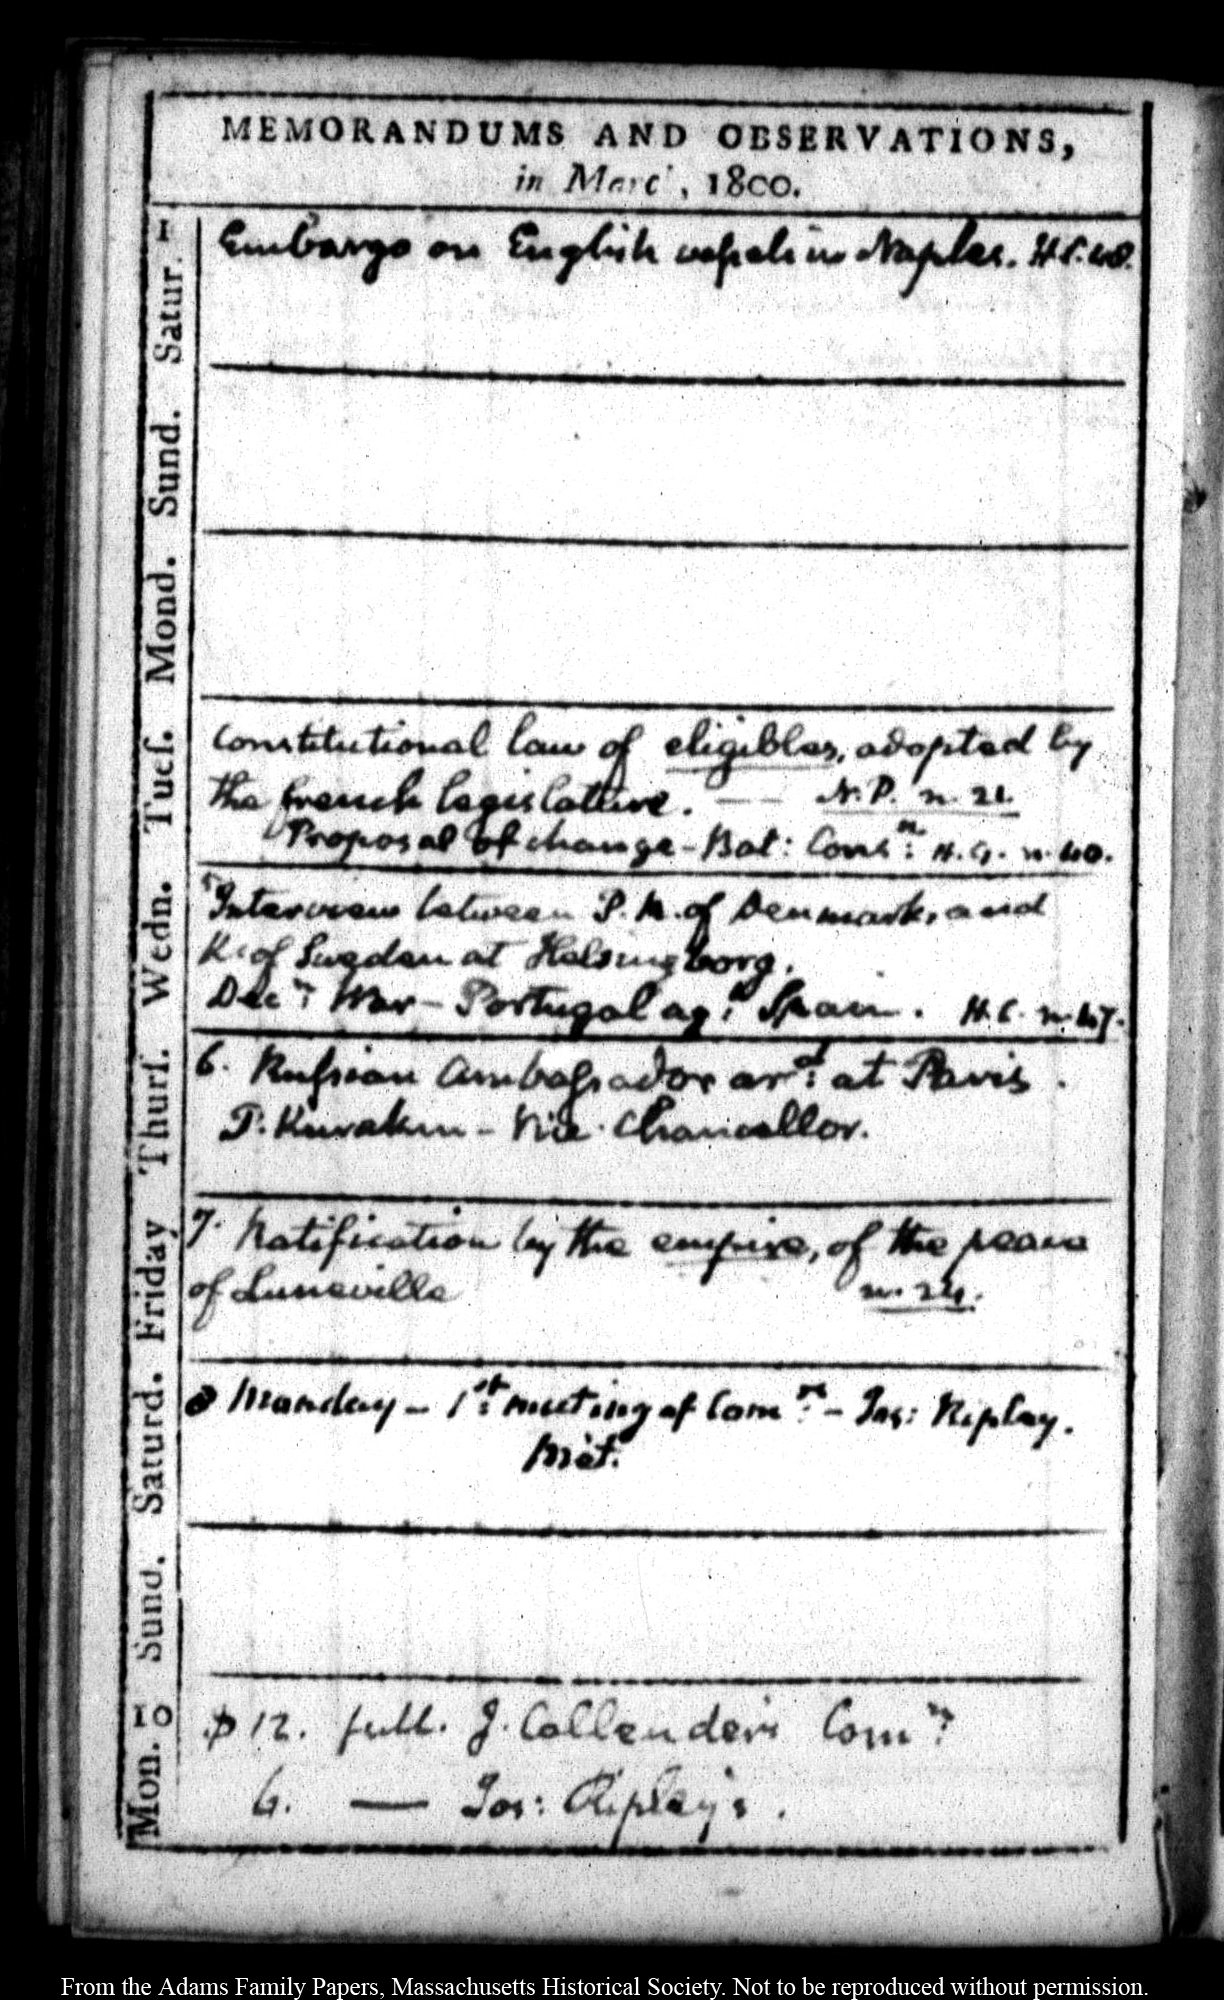 MEMORANDUMS AND OBSERVATIONS,
in Marc, 1800.
Satur. 1
Embargo on English vessels in Naples. H.C. 48.
Sund.
Mond.
Tues.
Constitutional law of eligibles, adopted by
the french legislature. — N.P. n. 21.
Proposal of change - Bat: Consn: H.G. n. 40.
Wedn.
Interview between P.R. of Denmark, and
K. of Sweden at Helsingborg.
Decn: War - Portugal agt: Spain. H.C. n. 47.
Thurs.
6. Russian Ambassador ard: at Paris.
P. Kurakin - Vice-Chancellor.
Friday
7. Ratification by the empire, of the peace
of Luneville n. 24.
Saturd.
8 Monday - 1st: meeting of Comrs: - Jos: Ripley.
Met.
Sund.
Mon. 10
$12. full. J. Callender's Comn:
6. — Jos: Ripley's.
From the Adams Family Papers, Massachusetts Historical Society. Not to be reproduced without permission.